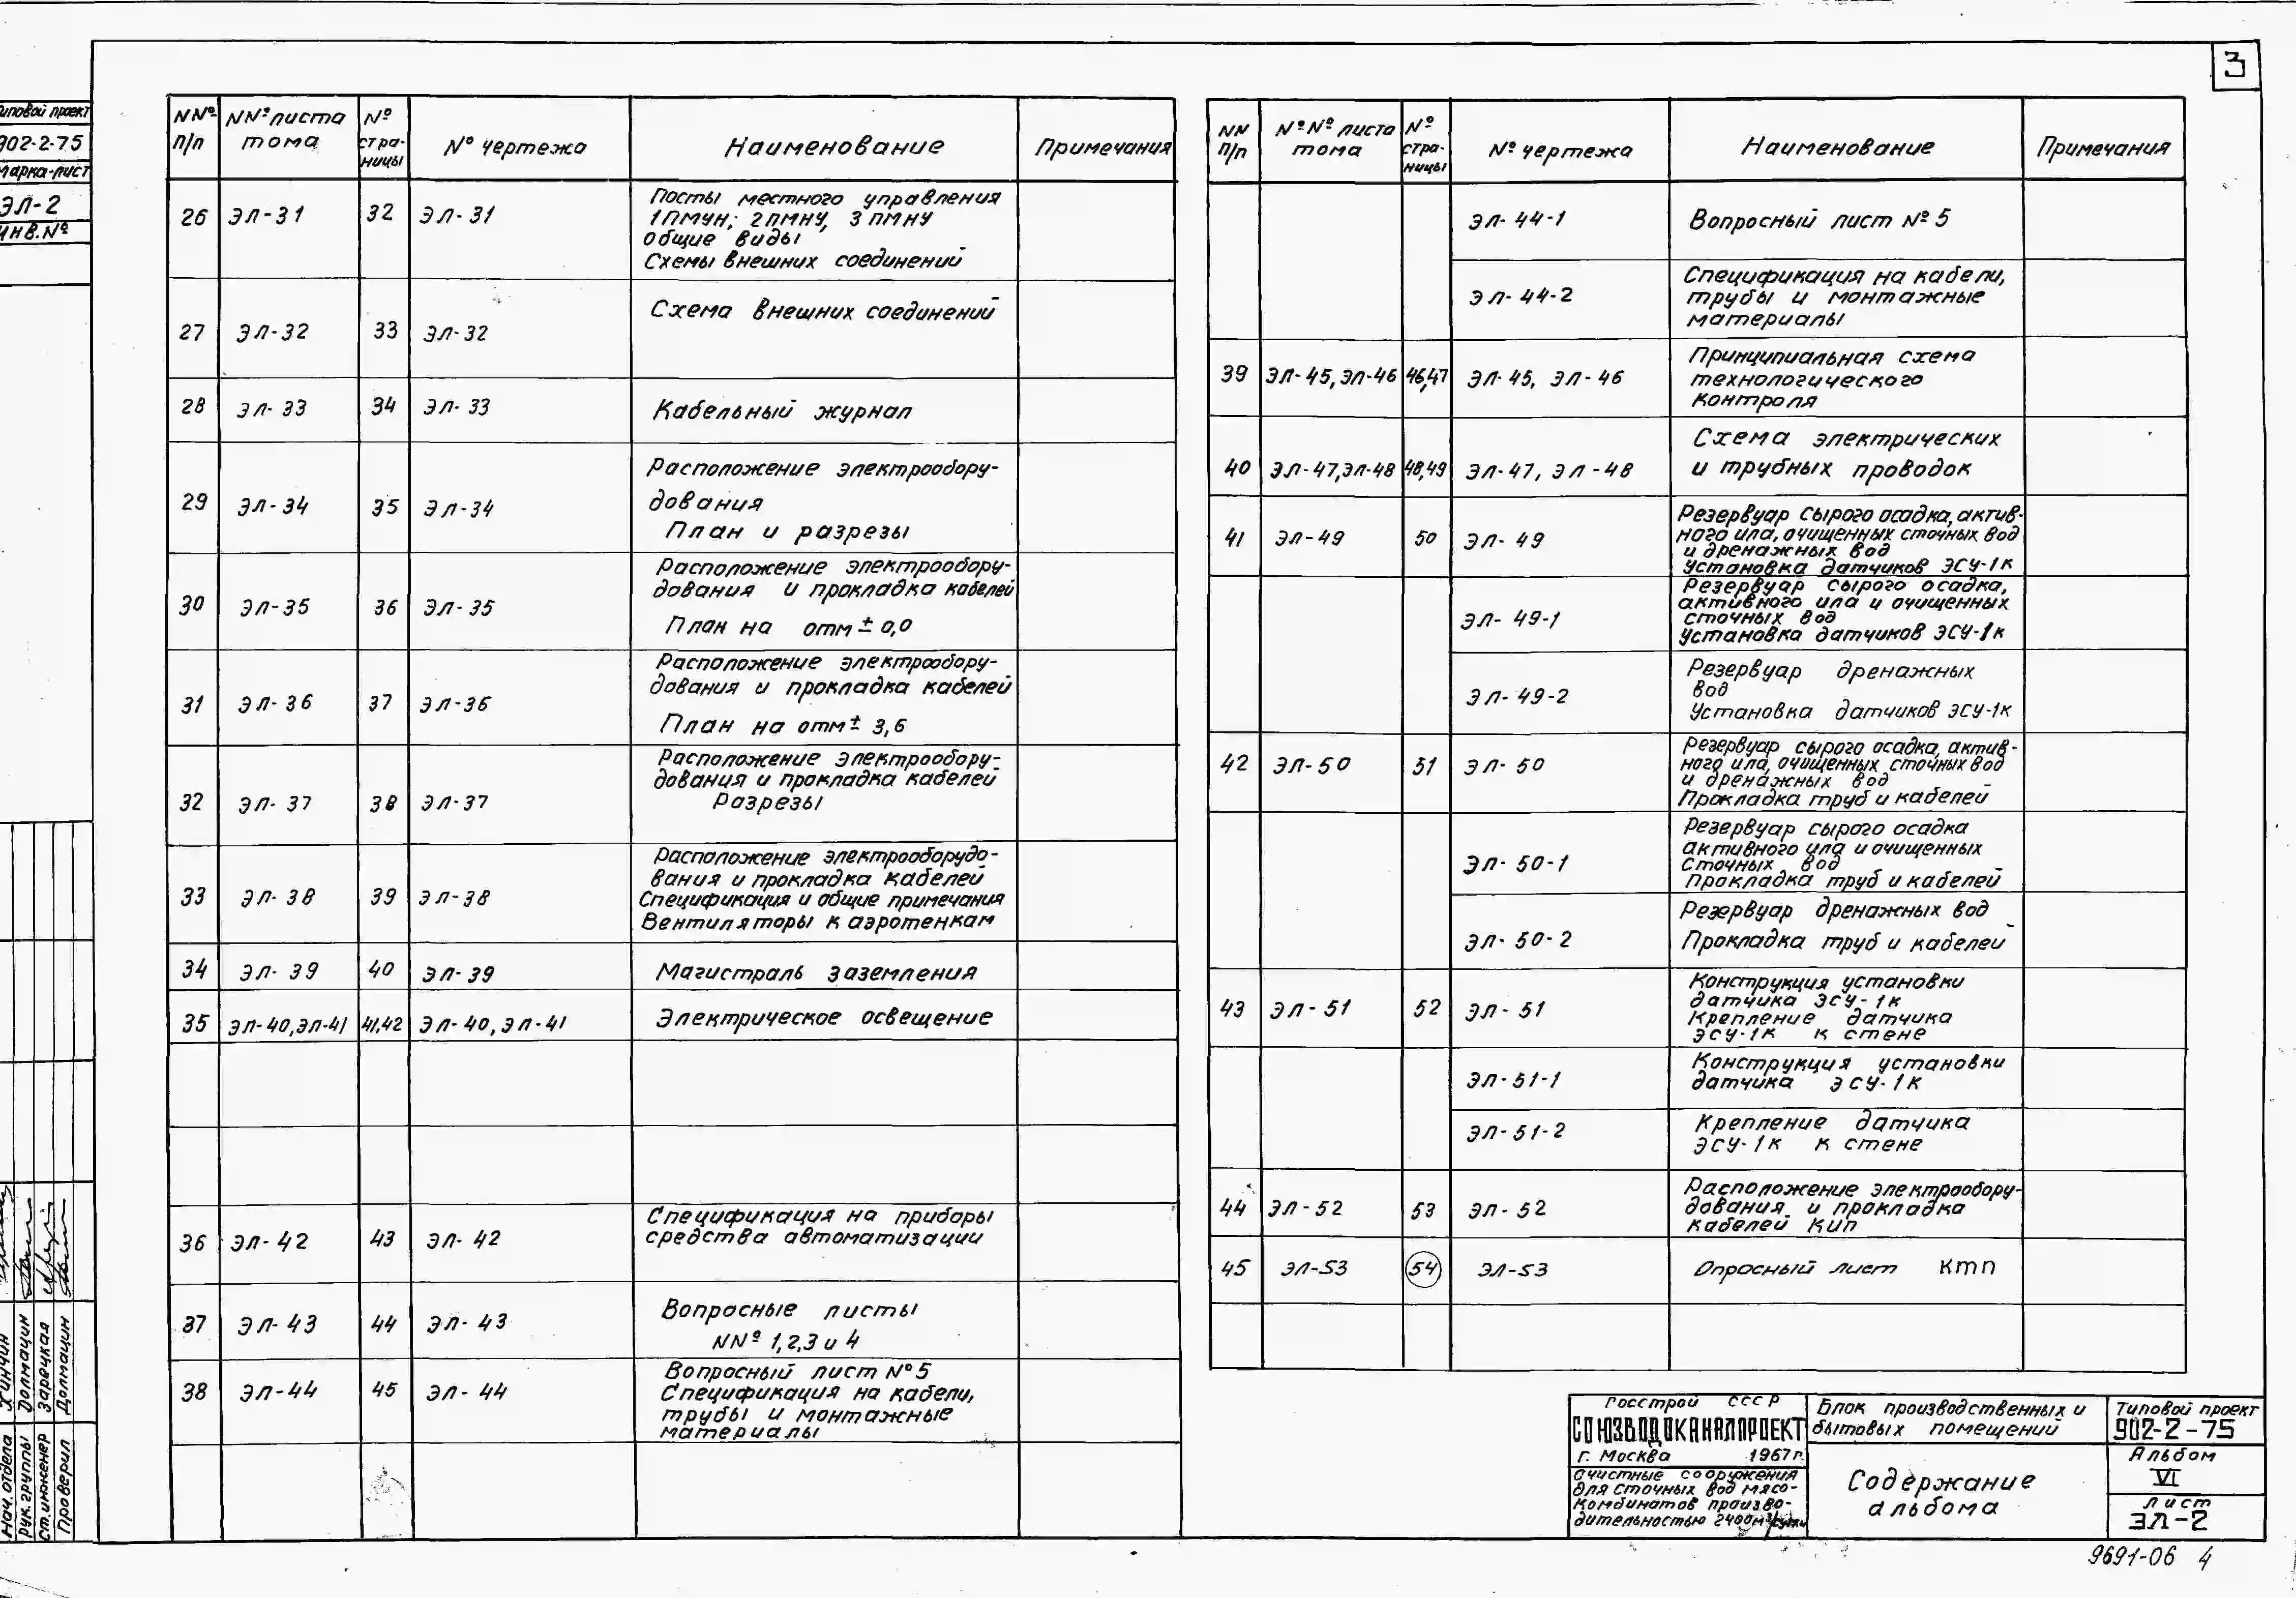 3
Типовой проект
902-2-75
Марка-лист
ЭЛ-2
Инв.№
NNº п/п
NNº листа тома
Nº страницы
Nº чертежа
Наименование
Примечания
26 ЭЛ-31 32 ЭЛ-31
Посты местного управления
1ПМУН; 2ПМНУ, 3 ПМНУ
общие виды
Схемы внешних соединений
27 ЭЛ-32 33 ЭЛ-32
Схема внешних соединений
28 ЭЛ-33 34 ЭЛ-33
Кабельный журнал
29 ЭЛ-34 35 ЭЛ-34
Расположение электрообору-
дования
План и разрезы
30 ЭЛ-35 36 ЭЛ-35
Расположение электрообору-
дования и прокладка кабелей
План на отм ± 0,0
31 ЭЛ-36 37 ЭЛ-36
Расположение электрообору-
дования и прокладка кабелей
План на отм ± 3,6
32 ЭЛ-37 38 ЭЛ-37
Расположение электрообору-
дования и прокладка кабелей
Разрезы
33 ЭЛ-38 39 ЭЛ-38
Расположение электрооборудо-
вания и прокладка кабелей
Спецификация и общие примечания
Вентиляторы к аэротенкам
34 ЭЛ-39 40 ЭЛ-39
Магистраль заземления
35 ЭЛ-40,ЭЛ-41 41,42 ЭЛ-40,ЭЛ-41
Электрическое освещение
36 ЭЛ-42 43 ЭЛ-42
Спецификация на приборы
средства автоматизации
37 ЭЛ-43 44 ЭЛ-43
Вопросные листы
NNº 1,2,3 и 4
38 ЭЛ-44 45 ЭЛ-44
Вопросный лист Nº5
Спецификация на кабели,
трубы и монтажные
материалы
NN п/п
Nº Nº листа тома
Nº стра-ницы
Nº чертежа
Наименование
Примечания
ЭЛ-44-1
Вопросный лист Nº 5
ЭЛ-44-2
Спецификация на кабели,
трубы и монтажные
материалы
39 ЭЛ-45,ЭЛ-46 46,47 ЭЛ-45, ЭЛ-46
Принципиальная схема
технологического
контроля
40 ЭЛ-47,ЭЛ-48 48,49 ЭЛ-47, ЭЛ-48
Схема электрических
и трубных проводок
41 ЭЛ-49 50 ЭЛ-49
Резервуар сырого осадка, актив-
ного ила, очищенных сточных вод
и дренажных вод
Установка датчиков ЭСУ-1К
ЭЛ-49-1
Резервуар сырого осадка,
активного ила и очищенных
сточных вод
Установка датчиков ЭСУ-1к
ЭЛ-49-2
Резервуар дренажных
вод
Установка датчиков ЭСУ-1к
42 ЭЛ-50 51 ЭЛ-50
Резервуар сырого осадка, актив-
ного ила, очищенных сточных вод
и дренажных вод
Прокладка труб и кабелей
ЭЛ-50-1
Резервуар сырого осадка
активного ила и очищенных
сточных вод
Прокладка труб и кабелей
ЭЛ-50-2
Резервуар дренажных вод
Прокладка труб и кабелей
43 ЭЛ-51 52 ЭЛ-51
Конструкция установки
датчика ЭСУ-1К
Крепление датчика
ЭСУ-1К к стене
ЭЛ-51-1
Конструкция установки
датчика ЭСУ-1К
ЭЛ-51-2
Крепление датчика
ЭСУ-1К к стене
44 ЭЛ-52 53 ЭЛ-52
Расположение электрообору-
дования и прокладка
кабелей КИП
45 ЭЛ-53 54 ЭЛ-53
Опросный лист КТП
Нач. отдела
Рук. группы Долмацин
Ст. инженер Зарецкая
Проверил Долмацин
Госстрой СССР
СОЮЗВОДОКАНАЛПРОЕКТ
г. Москва 1967г.
Очистные сооружения
для сточных вод мясо-
комбинатов произво-
дительностью 2400м³/сутки
Блок производственных и
бытовых помещений
Содержание
альбома
Типовой проект
902-2-75
Альбом
VI
Лист
ЭЛ-2
9691-06 4